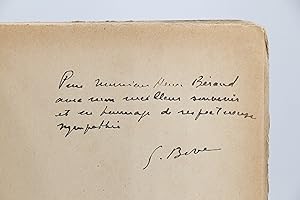 Pour Monsieur Henri Béraud
avec mon meilleur souvenir
et en hommage de respectueuse
sympathie